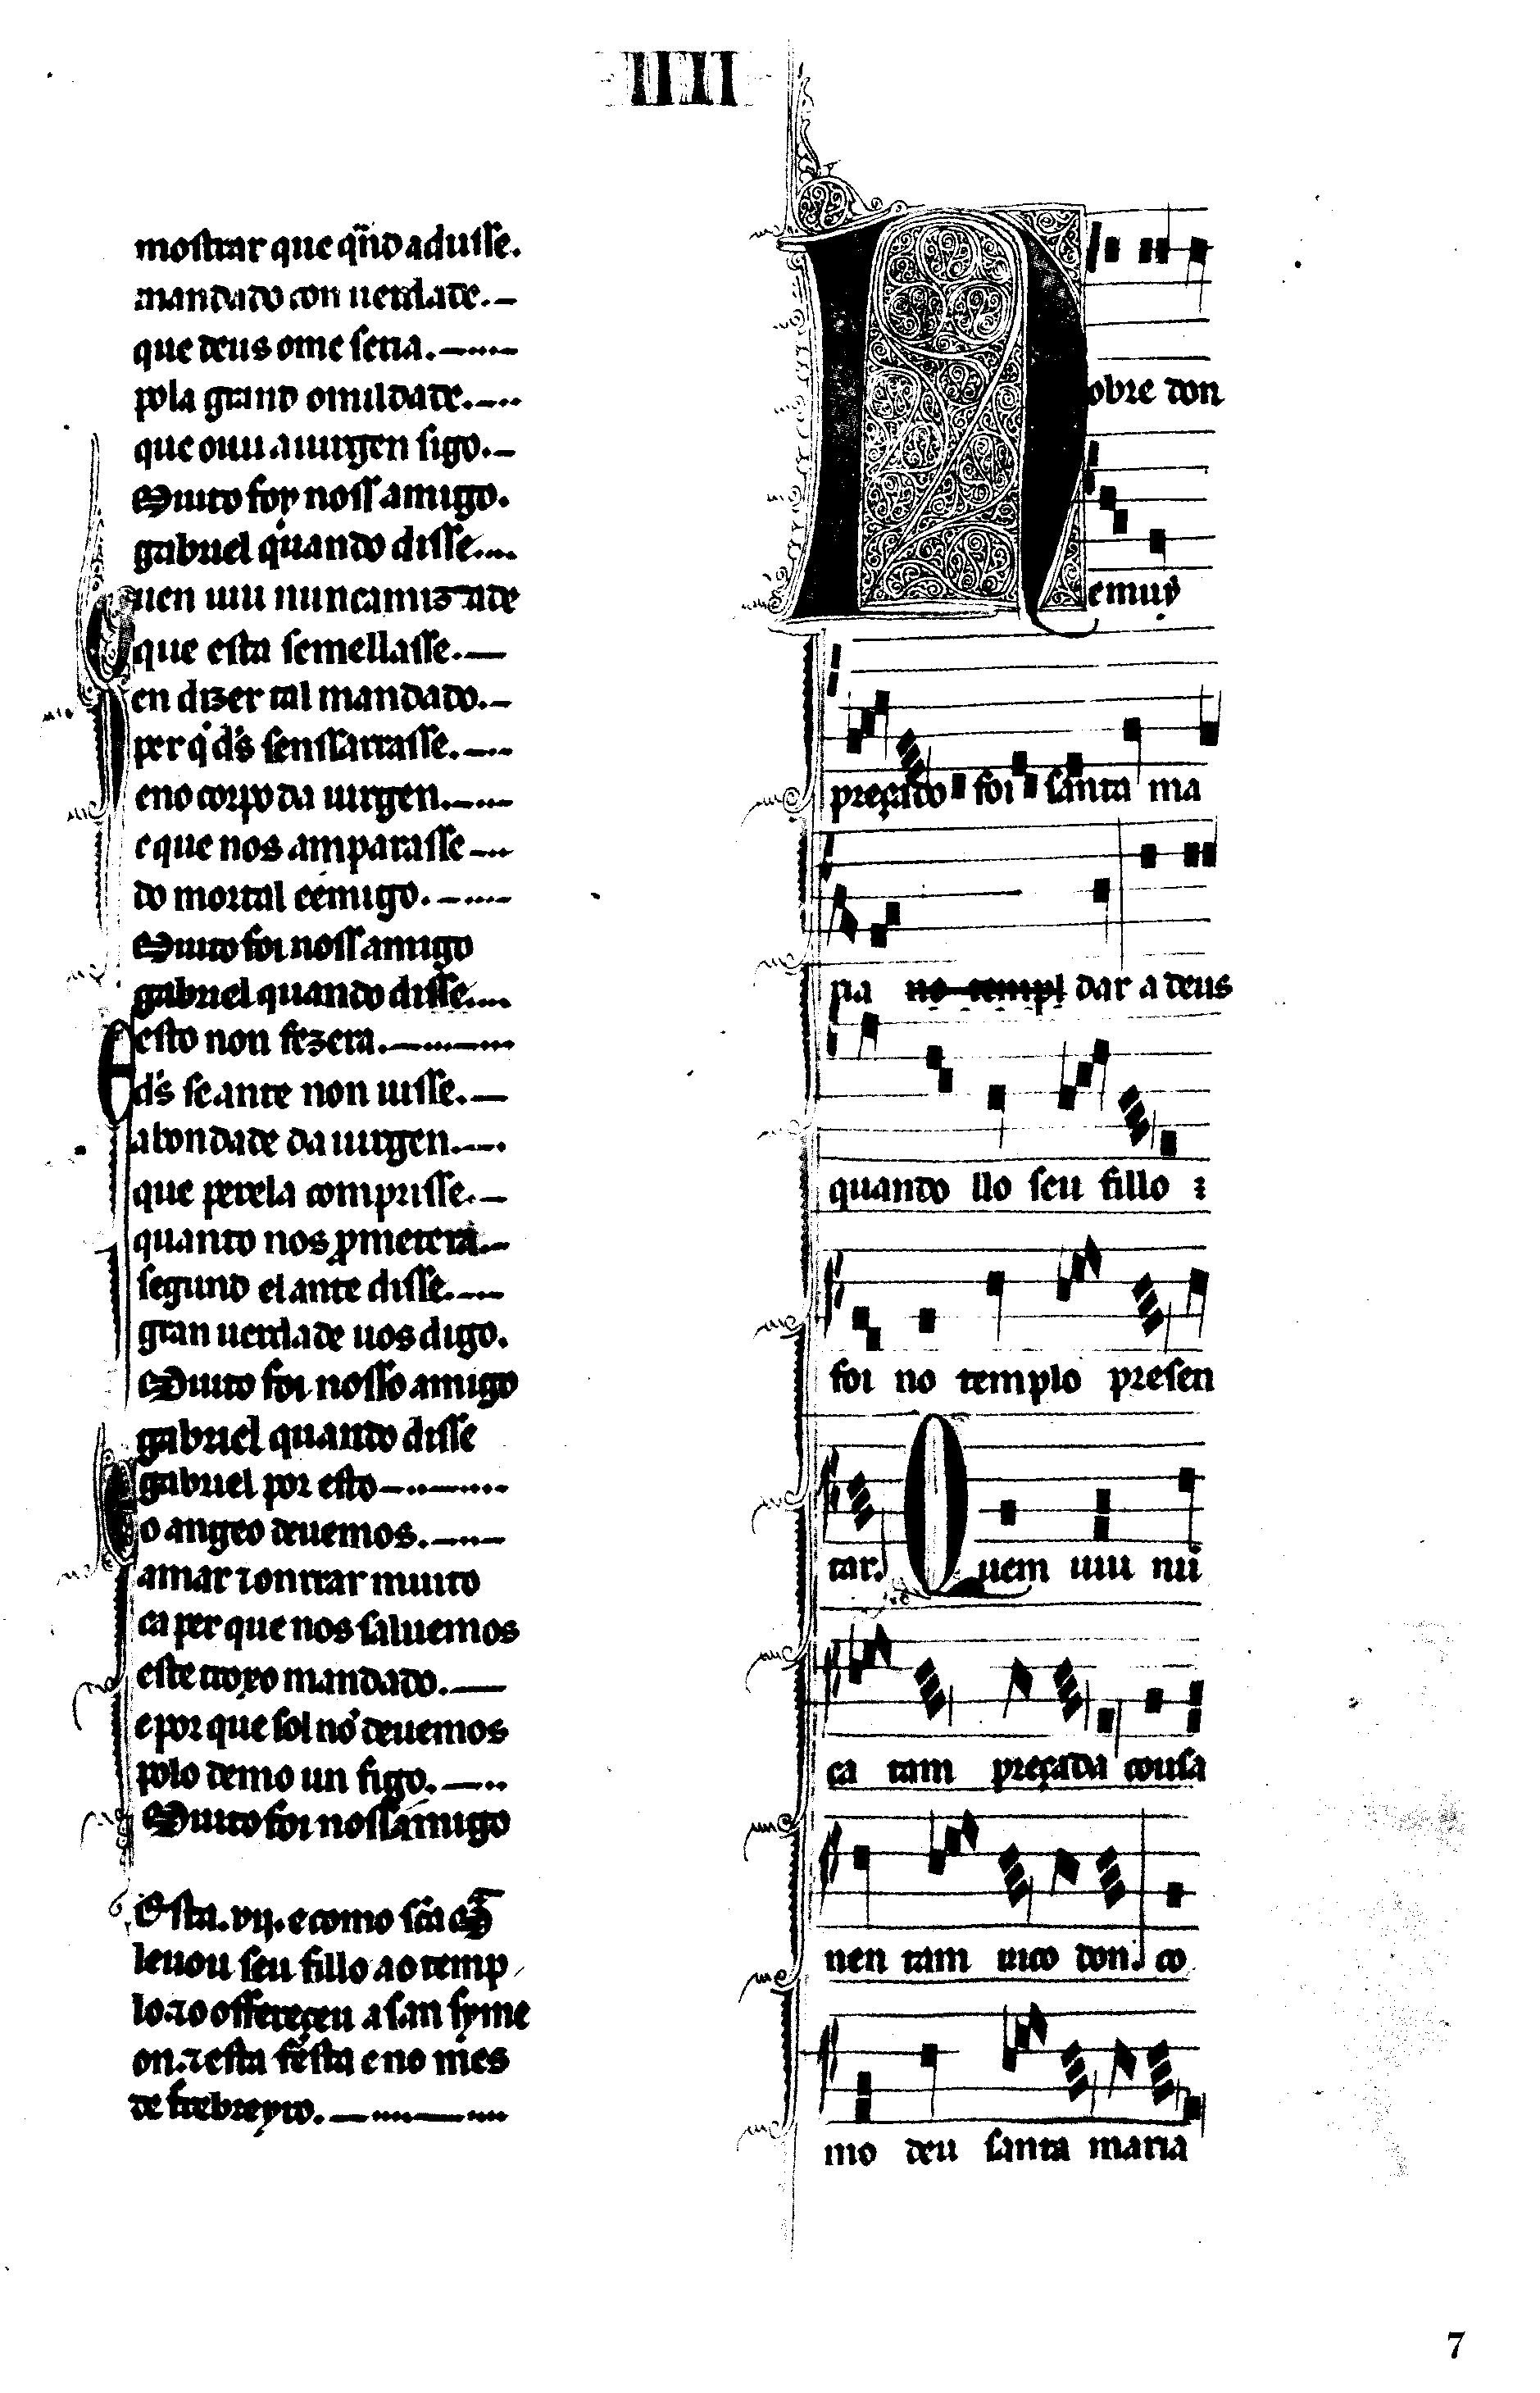 IIII
mostrar que q̃ndo aduisse.
mandado con uerdade.
que deus ome seria.
pola grand omildade.
que ouu a uirgen sigo.
Muito foy noss amigo.
gabriel quando disse.
Quen uiu nunca miztade
que esta semellasse.
en dizer tal mandado.
per q̇ d's senssarrasse.
eno corpo da uirgen.
e que nos amparasse
do mortal eẽmigo.
Muito foi noss amigo
gabriel quando disse.
E esto non fezera.
d's se ante non uisse.
a bondade da uirgen.
que perela comprisse.
quanto nos ꝓmetera.
segund el ante disse.
gran uerdade uos digo.
Muito foi nosso amigo
gabriel quando disse
gabriel por esto
o angeo deuemos.
amar ⁊ onrrar muito
ca per que nos saluemos
este troxo mandado.
e por que sol nõ deuemos
polo demo un figo.
Muito foi noss amigo
Esta .vij. e como sc̃a M̃
leuou seu fillo ao temp
lo. ⁊ o offereçeu a san syme
on. ⁊ esta festa e no mes
de febreyro.
Nobre don
e muy
preçado foi santa ma
ria no templ dar a deus
quando llo seu fillo ⁊
foi no templo presen
tar. Quem uiu nũ
ca tam preçada cousa
nen tam rico don. co
mo deu santa maria
7